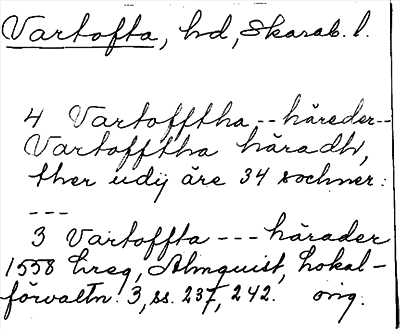 Vartofta, hd, Skarab. l.
4 Vartofftha -- häreder--
Vartofftha häradh,
ther udij äre 34 sochner:
---
3 Vartoffta --- härader
1558 Lreg, Almquist, Lokal-
förvaltn. 3, ss. 237, 242. orig.